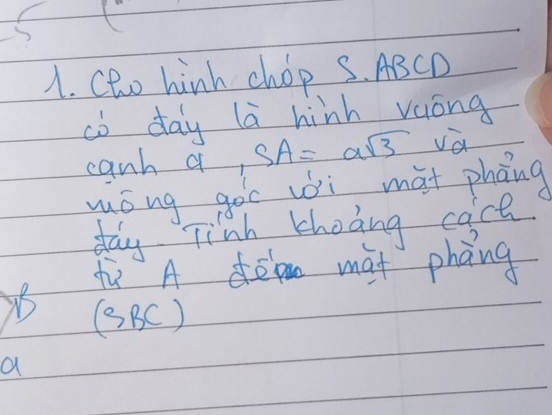 1. Cho hình chóp S.ABCD
có đáy là hình vuông
cạnh a, SA = a√3 và
vuông góc với mặt phẳng
đáy. Tính khoảng cách
từ A đến mặt phẳng
B (SBC)
a